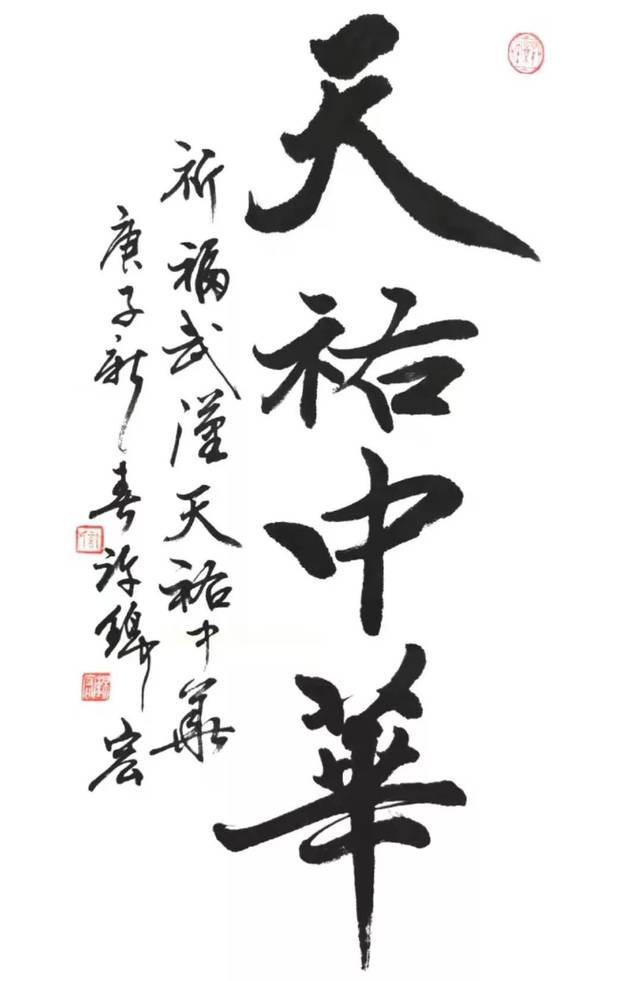 天祐中華
祈福武漢天祐中華
庚子新春許錦宏